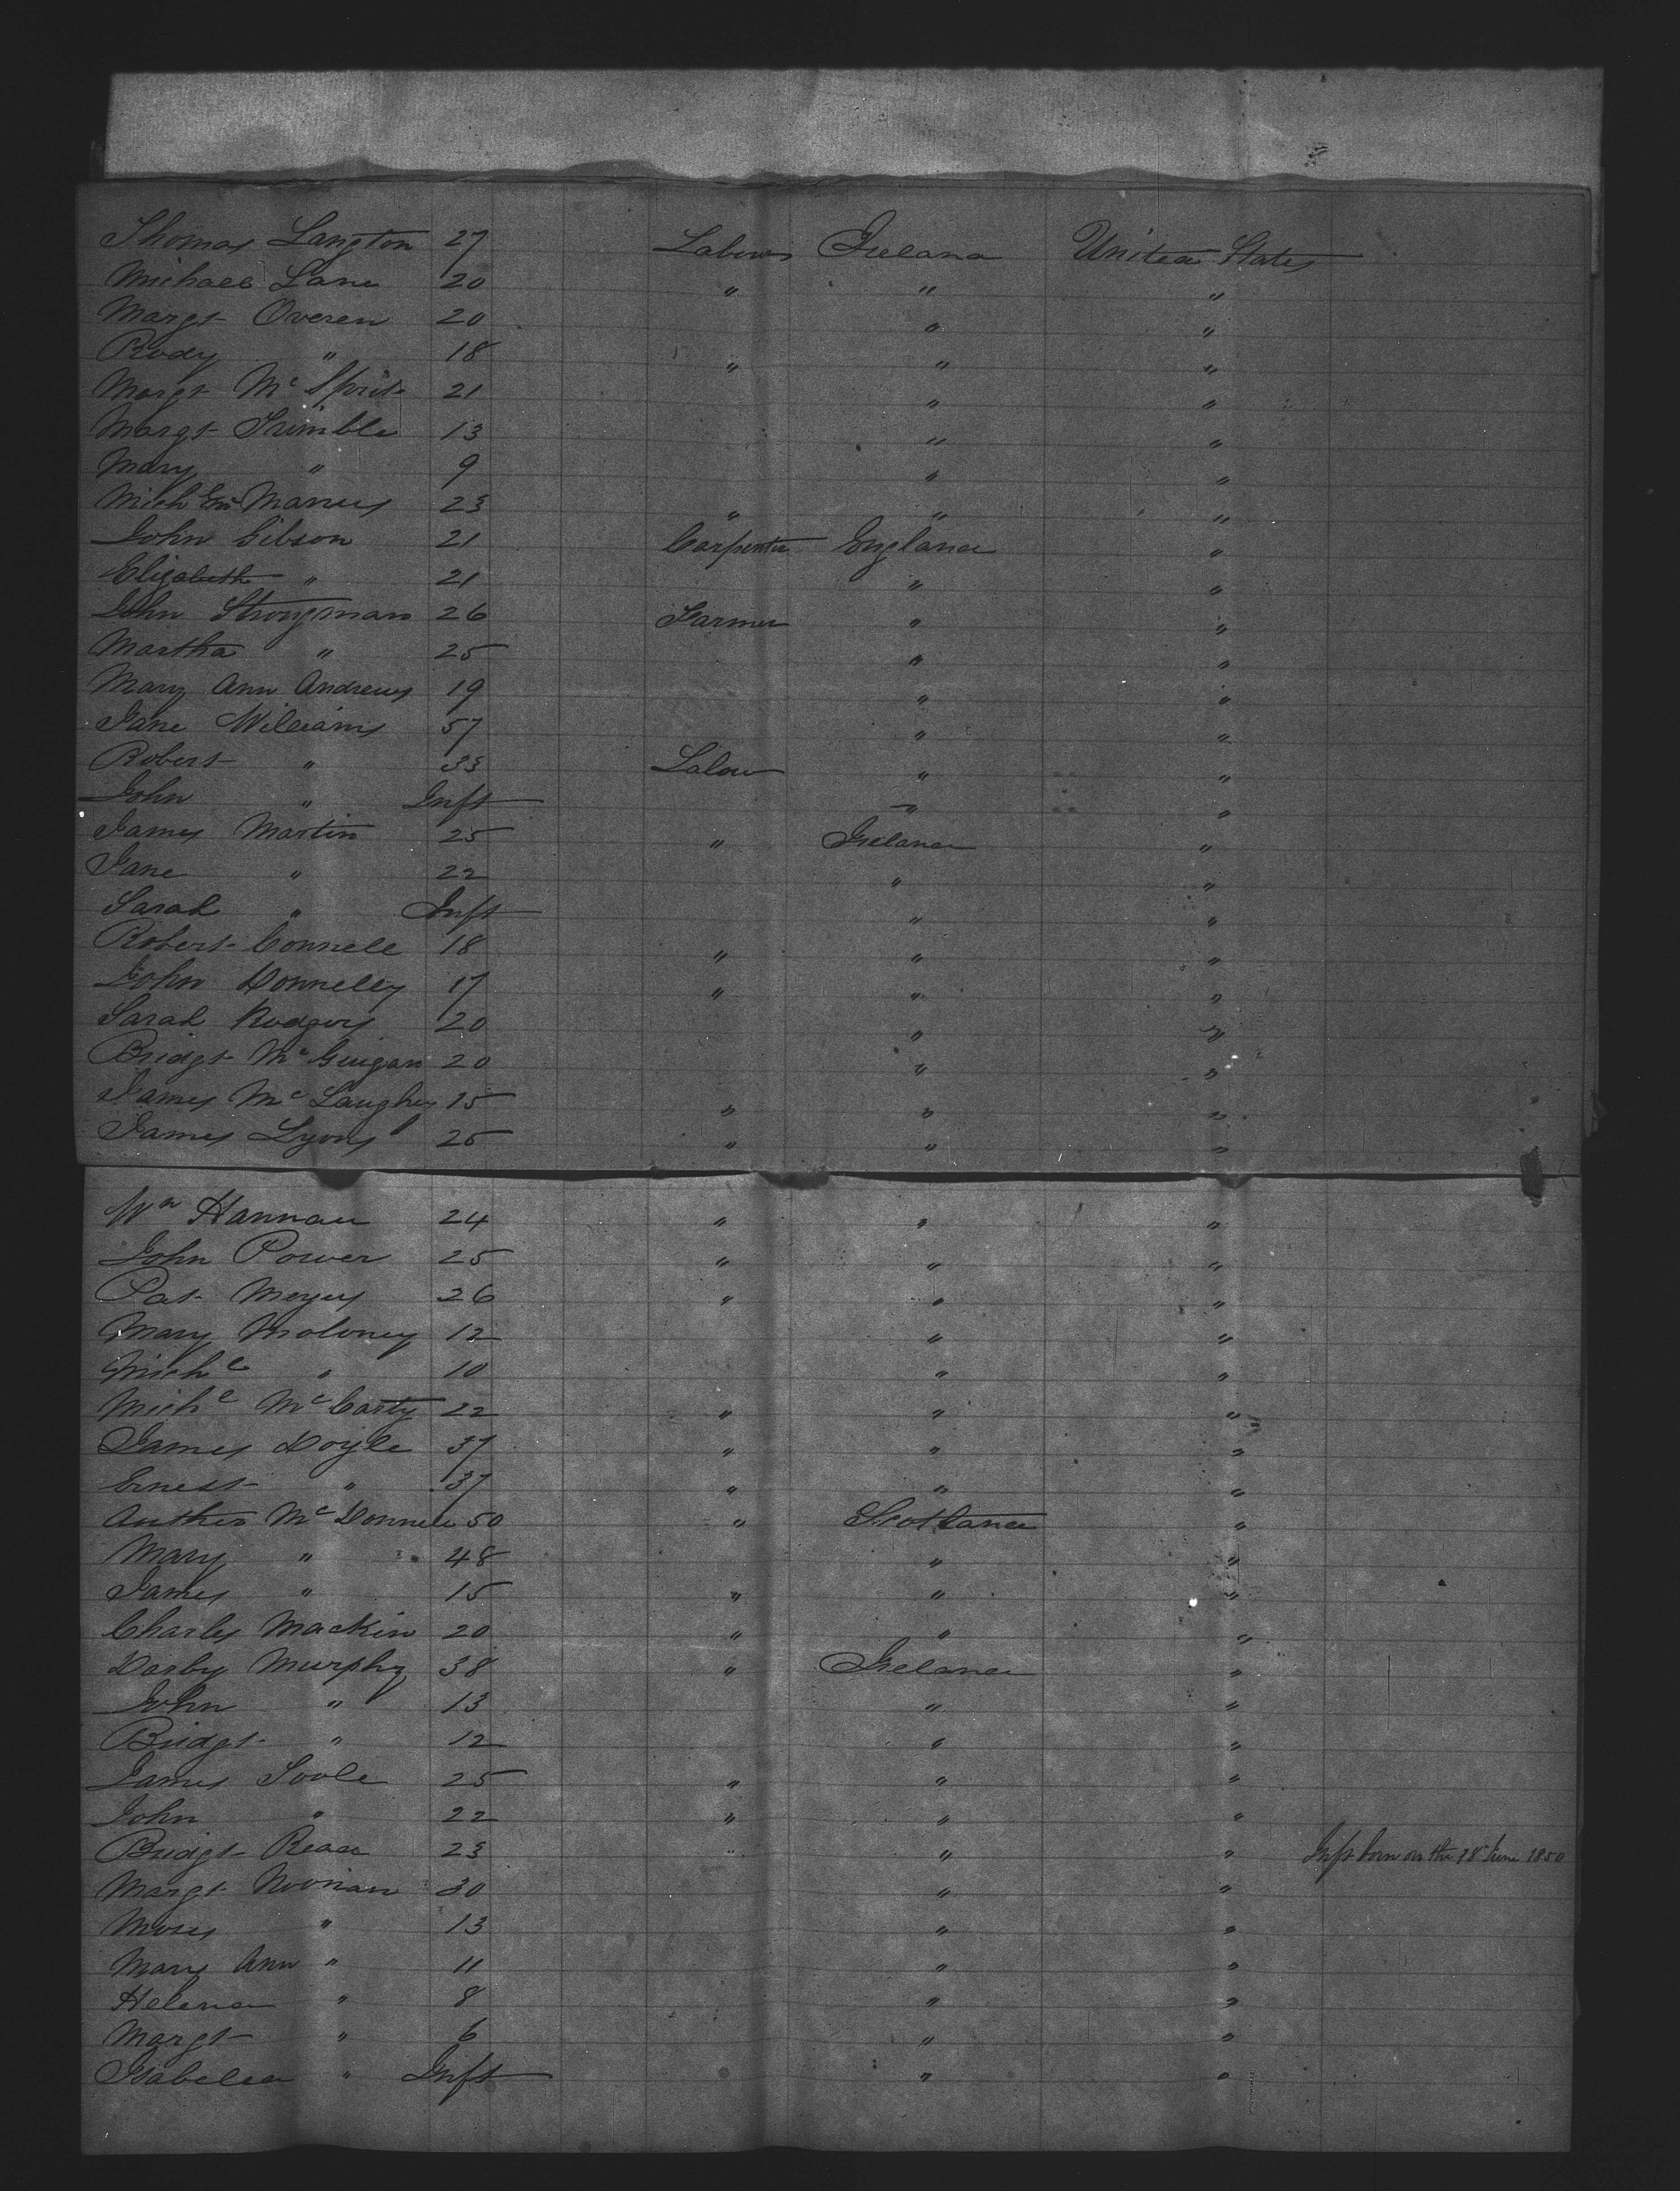 Thomas Langton 27 Labour Ireland United States
Michael Lane 20 " " "
Margt Overen 20 " "
Rody " 18 " " "
Margt Mc 21 " "
Margt Trimble 13 " "
Mary " 9 " "
Mich Manus 23 " " "
John Gibson 21 Carpenter England "
Elizabeth " 21 " "
John Strongman 26 Farmer " "
Martha " 25 " "
Mary Ann Andrews 19 " "
Jane Williams 57 " "
Robert " 33 Labour " "
John " Inft " "
James Martin 25 " Ireland "
Jane " 22 " "
Sarah " Inft " "
Robert Connell 18 " " "
John Donnelly 17 " " "
Sarah Rodgers 20 " "
Bridgt McGuigan 20 " "
James Mc 15 " " "
James Lyons 25 " " "
Wm Hannan 24 " " "
John Power 25 " " "
Pat 26 " " "
Mary Moloney 12 " "
Michl " 10 " "
Michl McCarty 22 " " "
James Doyle 37 " " "
Ernest " 37 " " "
McDonnell 50 " Scotland "
Mary " 48 " "
James " 15 " " "
Charles Mackin 20 " " "
Darby Murphy 38 " Ireland "
John " 13 " "
Bridgt " 12 " "
James Toole 25 " " "
John " 22 " " "
Bridgt Read 23 " " Inft born on the 18 June 1850
Margt Noonan 30 " "
Moses " 13 " "
Mary Ann " 11 " "
Helena " 8 " "
Margt " 6 " "
Isabella " Inft " "